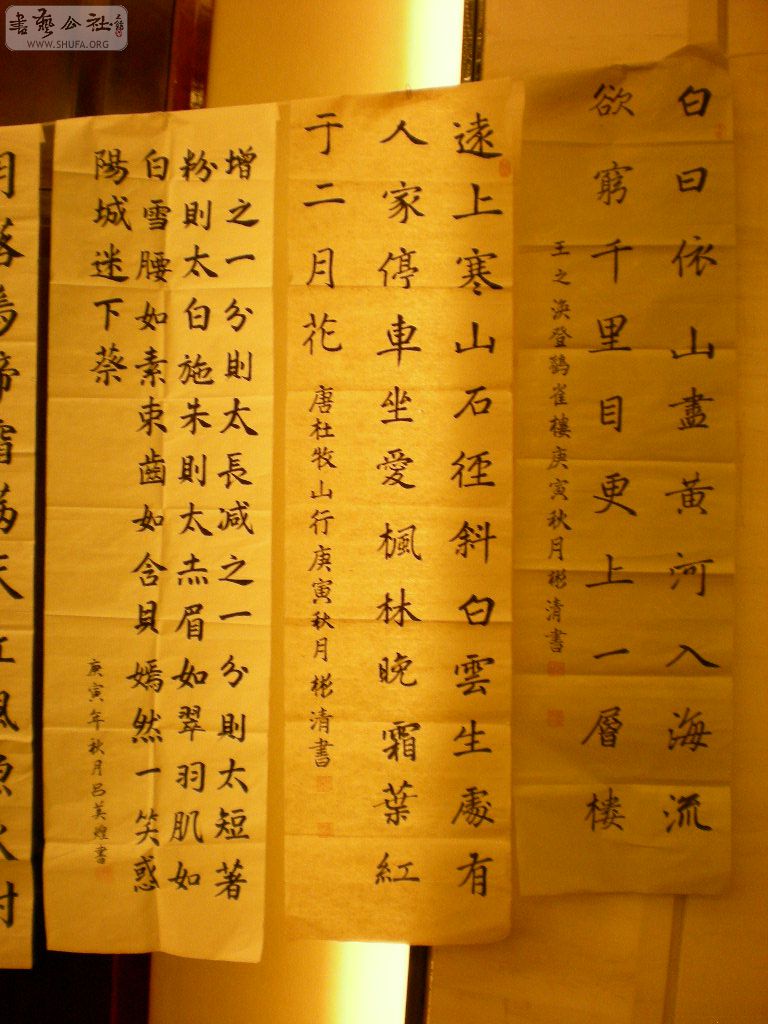 書藝公社
WWW.SHUFA.ORG
白日依山盡黃河入海流
欲窮千里目更上一層樓
王之渙登鸛雀樓庚寅秋月彬清書
遠上寒山石徑斜白雲生處有
人家停車坐愛楓林晚霜葉紅
于二月花
唐杜牧山行庚寅秋月彬清書
增之一分則太長减之一分則太短著
粉則太白施朱則太赤眉如翠羽肌如
白雪腰如素束齒如含貝嫣然一笑惑
陽城迷下蔡
庚寅年秋月吕英煌書
月落烏啼霜滿天江楓漁火對